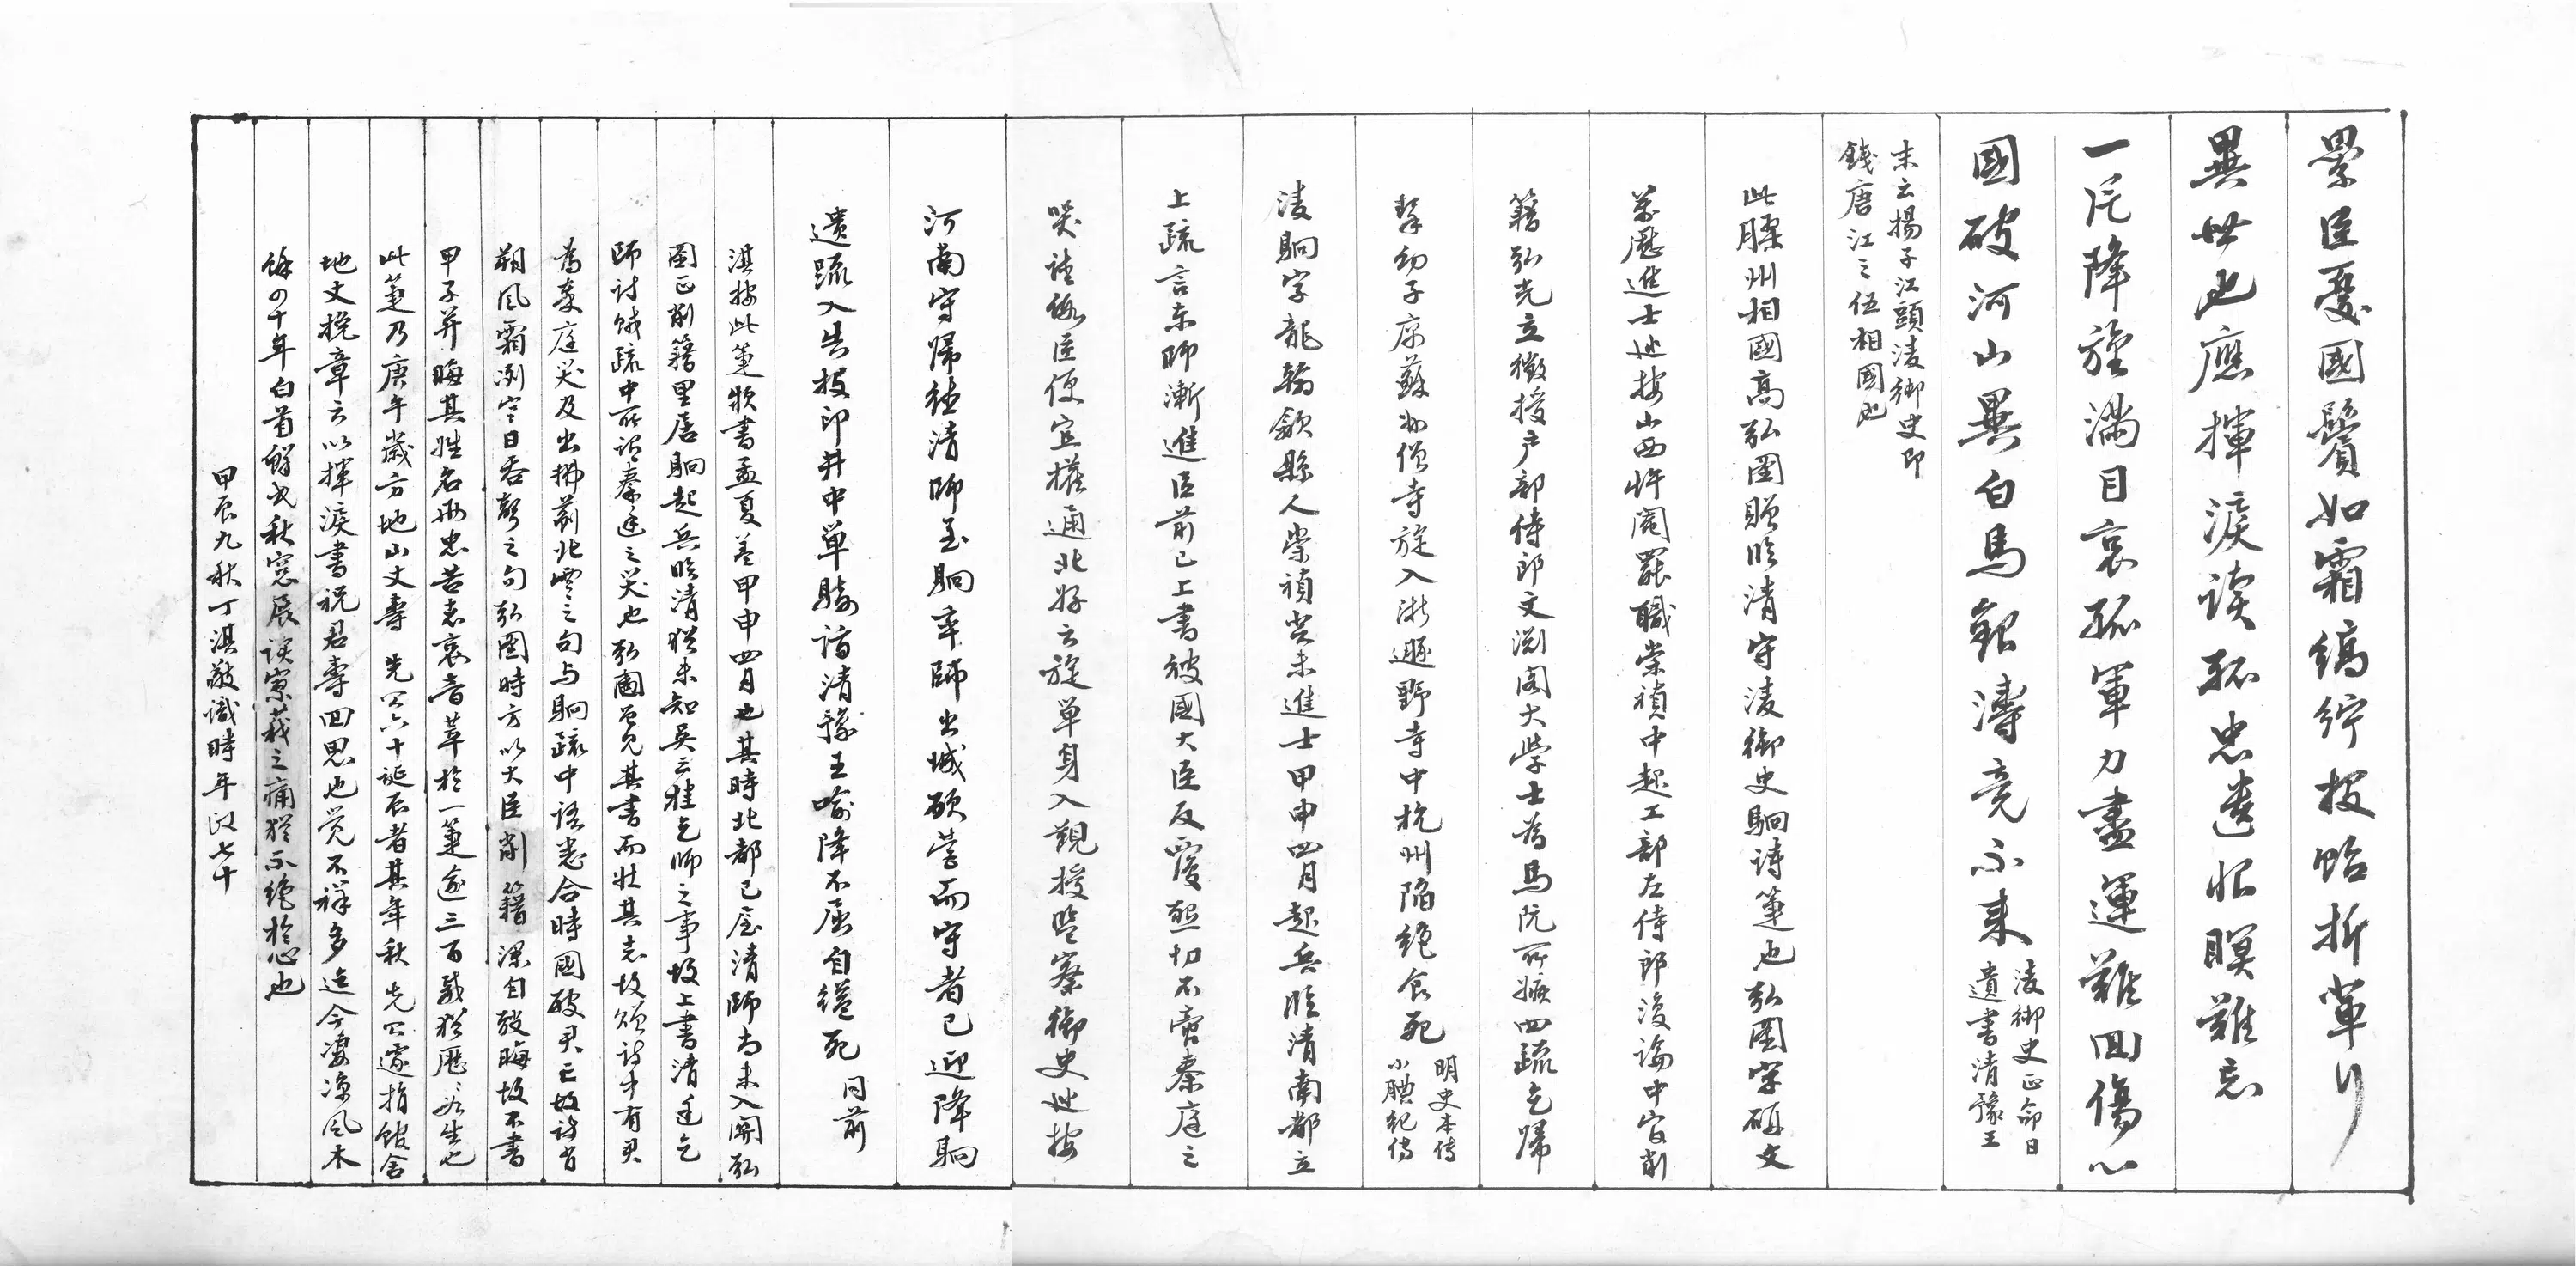 纍臣憂國鬢如霜縞紵投貽折軍行
異世也應揮淚读孤忠遺恨瞑難忘
一片降旌滿目哀孤軍力盡運難回傷心
國破河山異白馬銀濤竟不来
淩御史正命日
遺書清豫王
末云揚子江頭淩御史即
錢唐江之伍相國也
此膠州相國高弘圖贈臨清守淩御史駉詩箑也弘圖字硜文
萬歷進士廵按山西忤閹罷職崇禎中起工部左侍郎復論中官削
籍弘光立徵授户部侍郎文淵阁大學士為馬阮所嫉四疏乞歸
挈幼子寓蘇州僧寺旋入浙遯野寺中杭州陷绝食死
明史本传
小腆纪传
淩駉字龍翰歙縣人崇禎癸未進士甲申四月起兵臨清南都立
上疏言东師漸進臣前已上書彼國大臣反覆懇切不啻秦庭之
哭諸侮臣便宜權通北好云旋单身入覲授監察御史廵按
河南守歸德清師至駉率師出城砍營而守者已迎降駉
遗疏入告投印井中单騎謁清豫王喻降不屈自縊死
同前
淇按此箑欵書孟夏盖甲申四月也其時北都已屋清師尚未入關弘
圖正削籍里居駉起兵臨清猶未知吴三桂乞師之事故上書清廷乞
師討贼疏中所謂秦廷之哭也弘圖曾见其書而壮其志故贈诗中有君
為秦庭哭及出拂蓟北雲之句与駉疏中语悉合時國破君亡故诗首
朔風霜冽空日吞聲之句弘圖時方以大臣削籍深自韜晦故不書
甲子并晦其姓名而忠苦志哀音萃於一箑逾三百载猶歷歷如生也
此箑乃庚午歲方地山丈壽先公六十诞辰者其年秋先公遽捐馆舍
地丈挽章云以揮淚書祝君壽回思也觉不祥多迄今凄凉風木
餘四十年白首鲜民秋窓展读寥莪之痛猶不绝於心也
甲辰九秋丁淇敬識時年政七十